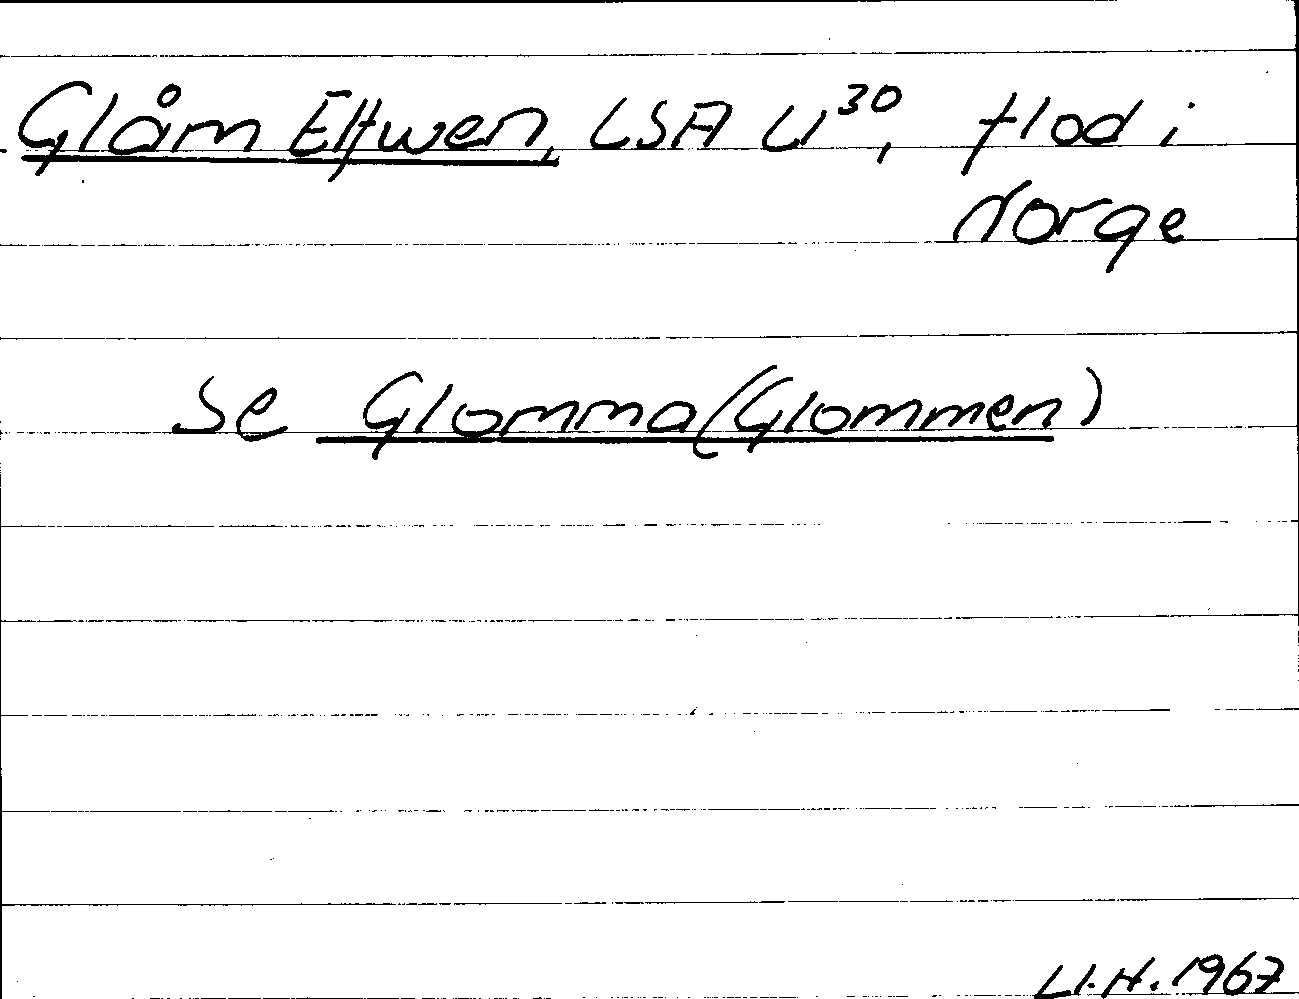 Glåm Elfwen, LSA U³⁰, flod i
Norge
se Glomma (Glommen)
U.H. 1967